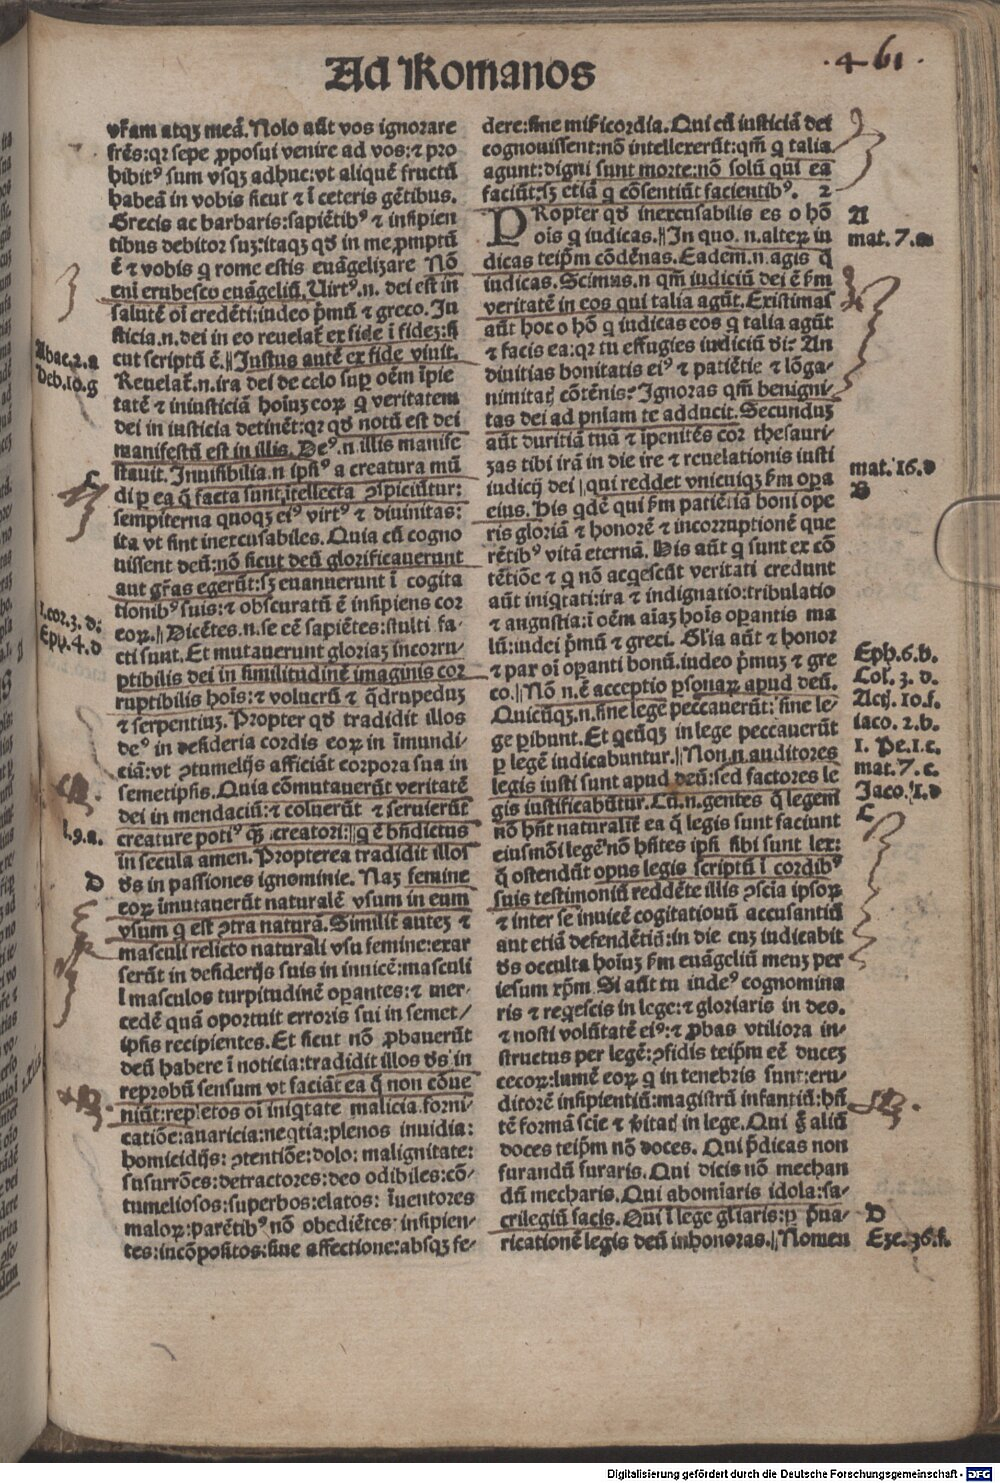 Ad Romanos
· 461 ·
vr̄am atqꝫ meā. Nolo aūt vos ignorare
fr̄es: qꝛ sepe ꝓposui venire ad vos: ⁊ pro
hibitꝰ sum vsqꝫ adhuc: vt aliquē fructū
habeā in vobis sicut ⁊ ī ceteris gētibus.
Grecis ac barbaris: sapiētibꝰ ⁊ insipien
tibus debitor suꝫ: itaqꝫ qđ in me ꝓmptū
ē ⁊ vobis q rome estis euāgelizare Nō
enī erubesco euāgeliū. Uirtꝰ .n. dei est in
salutē oī credēti: iudeo pͥmū ⁊ greco. Iu
sticia .n. dei in eo reuelat̄ ex fide ī fideꝫ: si
cut scriptū ē. || Iustus autē ex fide viuit.
Reuelat̄ .n. ira dei de celo suꝑ oēm īpie
tatē ⁊ iniusticiā hoīuꝫ eoꝝ q veritatem
dei in iusticia detinēt: qꝛ qđ notū est dei
manifestū est in illis. Deꝰ .n. illis manife
stauit. Inuisibilia .n ipsiꝰ a creatura mū
di ꝑ ea q̄ facta sunt, ītellecta ꝯspiciūtur:
sempiterna quoqꝫ eiꝰ virtꝰ ⁊ diuinitas:
ita vt sint inexcusabiles. Quia cū cogno
uissent deū: nō sicut deū glorificauerunt
aut gr̄as egerūt: sꝫ euanuerunt ī cogita
tionibꝰ suis: ⁊ obscuratū ē insipiens cor
eoꝝ. || Dicētes .n. se eē sapiētes: stulti fa⸗
cti sunt. Et mutauerunt gloriaꝫ incorru⸗
ptibilis dei in similitudinē imaginis cor
ruptibilis hoīs: ⁊ volucrū ⁊ q̄drupeduꝫ
⁊ serpentiuꝫ. Propter qđ tradidit illos
deꝰ in desideria cordis eoꝝ in īmundi⸗
ciā: vt ꝯtumelijs afficiāt corpora sua in
semetipsis. Quia cōmutauerūt veritatē
dei in mendaciū: ⁊ coluerūt ⁊ seruierūt
creature potiꝰ qꝫ creatori: || q ē bn̄dictus
in secula amen. Propterea tradidit illos
đs in passiones ignominie. Naꝫ femine
eoꝝ īmutauerūt naturalē vsum in eum
vsum q est ꝯtra naturā. Similit̄ auteꝫ ⁊
masculi relicto naturali vsu femine: exar
serūt in desiderijs suis in inuicē: masculi
ī masculos turpitudinē oꝑantes: ⁊ mer⸗
cedē quā oportuit erroris sui in semet⸗
ipsis recipientes. Et sicut nō ꝓbauerūt
deū habere ī noticia: tradidit illos đs in
reprobū sensum vt faciāt ea q̄ non cōue
niūt: repletos oī iniqtate malicia forni⸗
catiōe: auaricia: neqtia: plenos inuidia:
homicidijs: ꝯtentiōe: dolo: malignitate:
susurrōes: detractores: deo odibiles: cō⸗
tumeliosos: superbos: elatos: īuentores
maloꝝ: parētibꝰ nō obediētes: insipien⸗
tes: incōpositos: sine affectione: absqꝫ fe⸗
Abac. 2. a
Heb. 10. g
C
1. cor. 3. d:
Eph. 4. d
D
dere: sine mīsericordia. Qui cū iusticiā dei
cognouissent: nō intellexerūt: qm̄ q talia
agunt: digni sunt morte: nō solū qui ea
faciūt: sꝫ etiā q cōsentiūt facientibꝰ. 2
PRopter qđ inexcusabilis es o hō
oīs q iudicas. || In quo .n. alteꝝ iu
dicas teip̄m cōdēnas. Eadem .n. agis q̄
iudicas. Scimus .n qm̄ iudiciū dei ē ẜm
veritatē in eos qui talia agūt. Existimas
aūt hoc o hō q iudicas eos q talia agūt
⁊ facis ea: qꝛ tu effugies iudiciū di? An
diuitias bonitatis eiꝰ ⁊ patiētie ⁊ lōga⸗
nimitatꝭ cōtēnis? Ignoras qm̄ benigni⸗
tas dei ad pn̄iam te adducit. Secunduꝫ
aūt duritiā tuā ⁊ īpenitēs cor thesauri⸗
zas tibi irā in die ire ⁊ reuelationis iusti
iudicij dei || qui reddet vnicuiqꝫ ẜm oꝑa
eius. His qdē qui ẜm patiētiā boni ope
ris gloriā ⁊ honorē ⁊ incorruptionē que
rētibꝰ vitā eternā. His aūt q sunt ex cō
tētiōe ⁊ q nō acqescūt veritati credunt
aūt iniqtati: ira ⁊ indignatio: tribulatio
⁊ angustia: ī oēm aīaꝫ hoīs oꝑantis ma
lū: iudei pͥmū ⁊ greci. Gl̄ia aūt ⁊ honor
⁊ pax oī oꝑanti bonū. iudeo pͥmuꝫ ⁊ gre
co. || Nō .n. ē acceptio ꝑsonaꝝ apud deū.
Quicūqꝫ .n. sine lege peccauerūt: sine le⸗
ge ꝑibunt. Et qcūqꝫ in lege peccauerūt
ꝑ legē iudicabuntur. || Non .n auditores
legis iusti sunt apud deū: sed factores le
gis iustificabūtur. Cū .n. gentes q̄ legem
nō hn̄t naturalit̄ ea q̄ legis sunt faciunt
eiusmōi legē nō hn̄tes ipsi sibi sunt lex:
q̄ ostendūt opus legis scriptū ī cordibꝰ
suis testimoniū reddēte illis ꝯscia ipsoꝝ
⁊ inter se inuicē cogitationū accusantiū
aut etiā defendētiū: in die cuꝫ iudicabit
đs occulta hoīuꝫ ẜm euāgeliū meuꝫ per
iesum xp̄m. Si aūt tu iudeꝰ cognomina
ris ⁊ reqescis in lege: ⁊ gloriaris in deo.
⁊ nosti volūtatē eiꝰ: ⁊ ꝓbas vtiliora in⸗
structus per legē: ꝯfidis teip̄m eē duceꝫ
cecoꝝ: lumē eoꝝ q in tenebris sunt: eru⸗
ditorē insipientiū: magistrū infantiū: hn̄
tē formā scīe ⁊ vitatꝭ in lege. Qui g̊ aliū
doces teip̄m nō doces. Qui p̄dicas non
furandū furaris. Qui dicis nō mechan
dū mecharis. Qui abomīaris idola: sa⸗
crilegiū facis. Qui ī lege gl̄iaris: ꝑ p̄ua⸗
ricationē legis deū inhonoras. || Nomen
A
mat. 7. a
mat. 16. d
B
Eph. 6. b.
Col. 3. d.
Actꝭ. 10. f.
iaco. 2. b.
1. Pe. 1. c.
mat. 7. c.
Jaco. 1. d
C
D
Eze. 36. f.
Digitalisierung gefördert durch die Deutsche Forschungsgemeinschaft - DFG